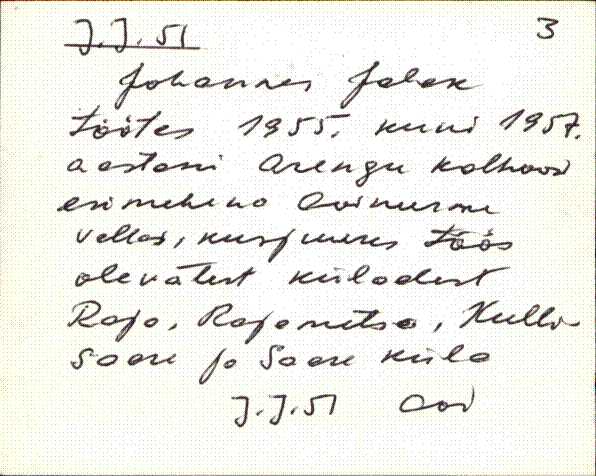 J.J. 51 3
Johannes Jalak
töötas 1955. kuni 1957.
aastani Arengu kolhoosi
esimehena Avinurme
vallas, kusjuures töös
olevatest küladest
Raja, Rajametsa, Kulli-
saare ja Saare küla
J.J. 51 Avi